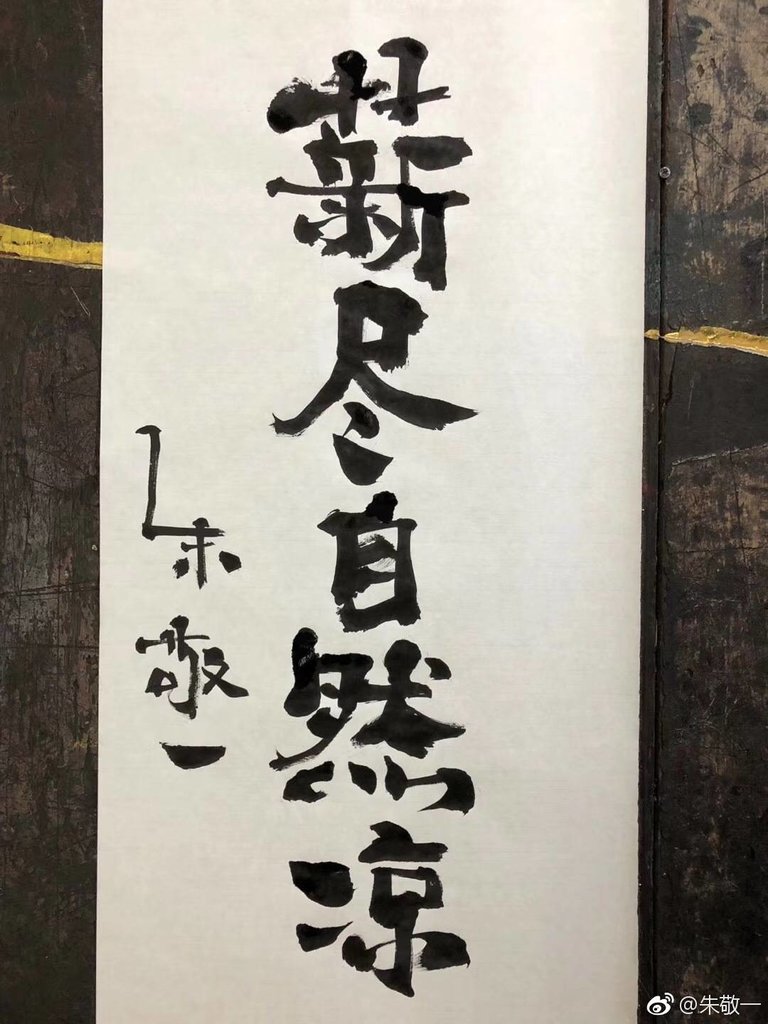 薪尽自然凉
朱敬一
@朱敬一